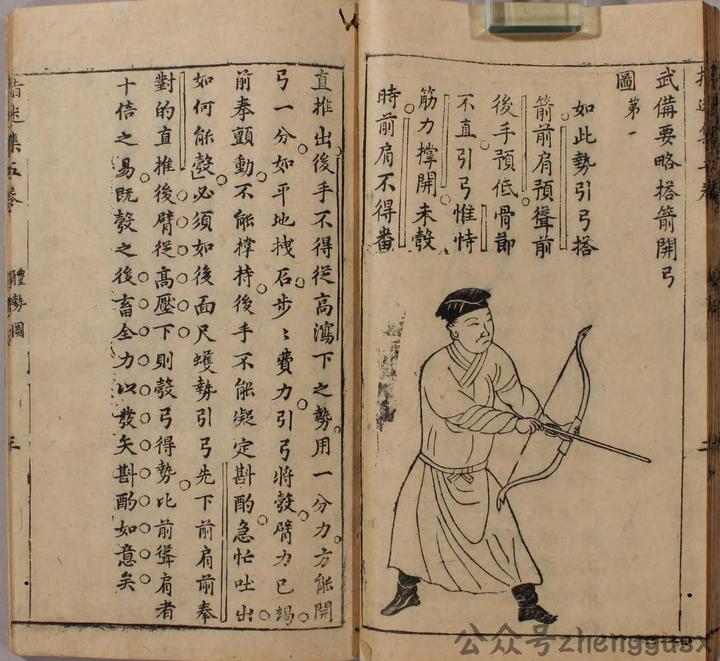 武備要略搭箭開弓
圖第一
如此勢引弓搭
箭前肩預聳前
後手預低骨節
不直引弓惟恃
筋力撐開未彀
時前肩不得番
直推出後手不得從高瀉下之勢用一分力方能開
弓一分如平地拽石步々費力引弓將彀臂力已竭
前拳顫動不能撐持後手不能凝定斟酌急忙吐出
如何能彀必須如後面尺蠖勢引弓先下前肩前拳
對的直推後臂從高壓下則彀弓得勢比前聳肩者
十倍之易既彀之後畜全力以發矢斟酌如意矣
集五卷 體勢圖 三
公众号zhenggusx